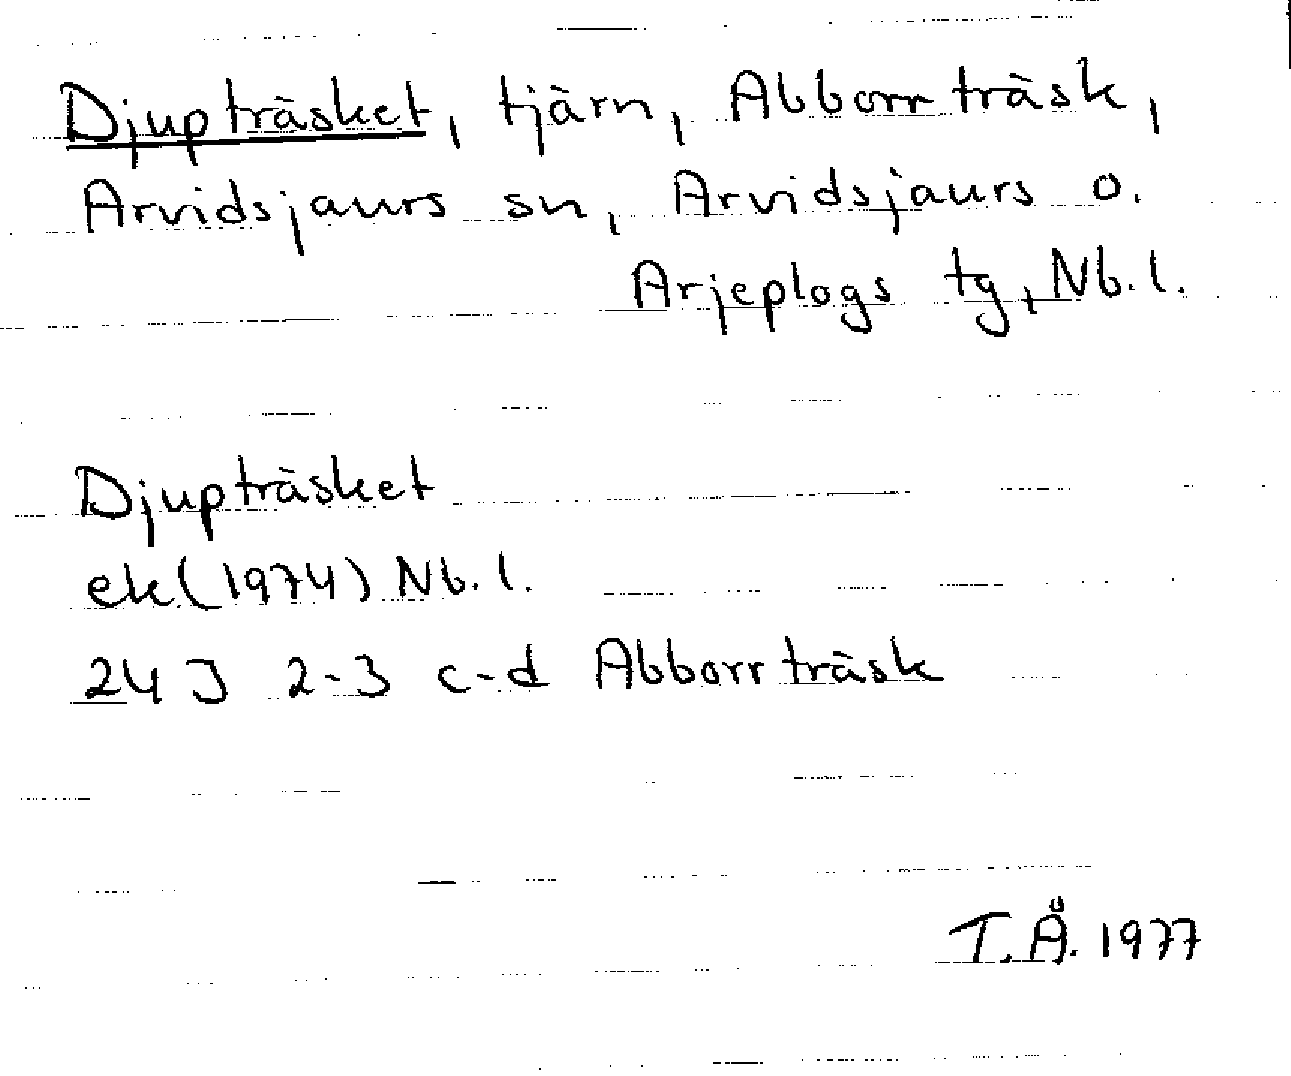 Djupträsket, tjärn, Abborrträsk,
Arvidsjaurs sn, Arvidsjaurs o.
Arjeplogs tg, Nb.l.
Djupträsket
ek (1974) Nb.l.
24 J 2-3 c-d Abborrträsk
T.Å. 1977